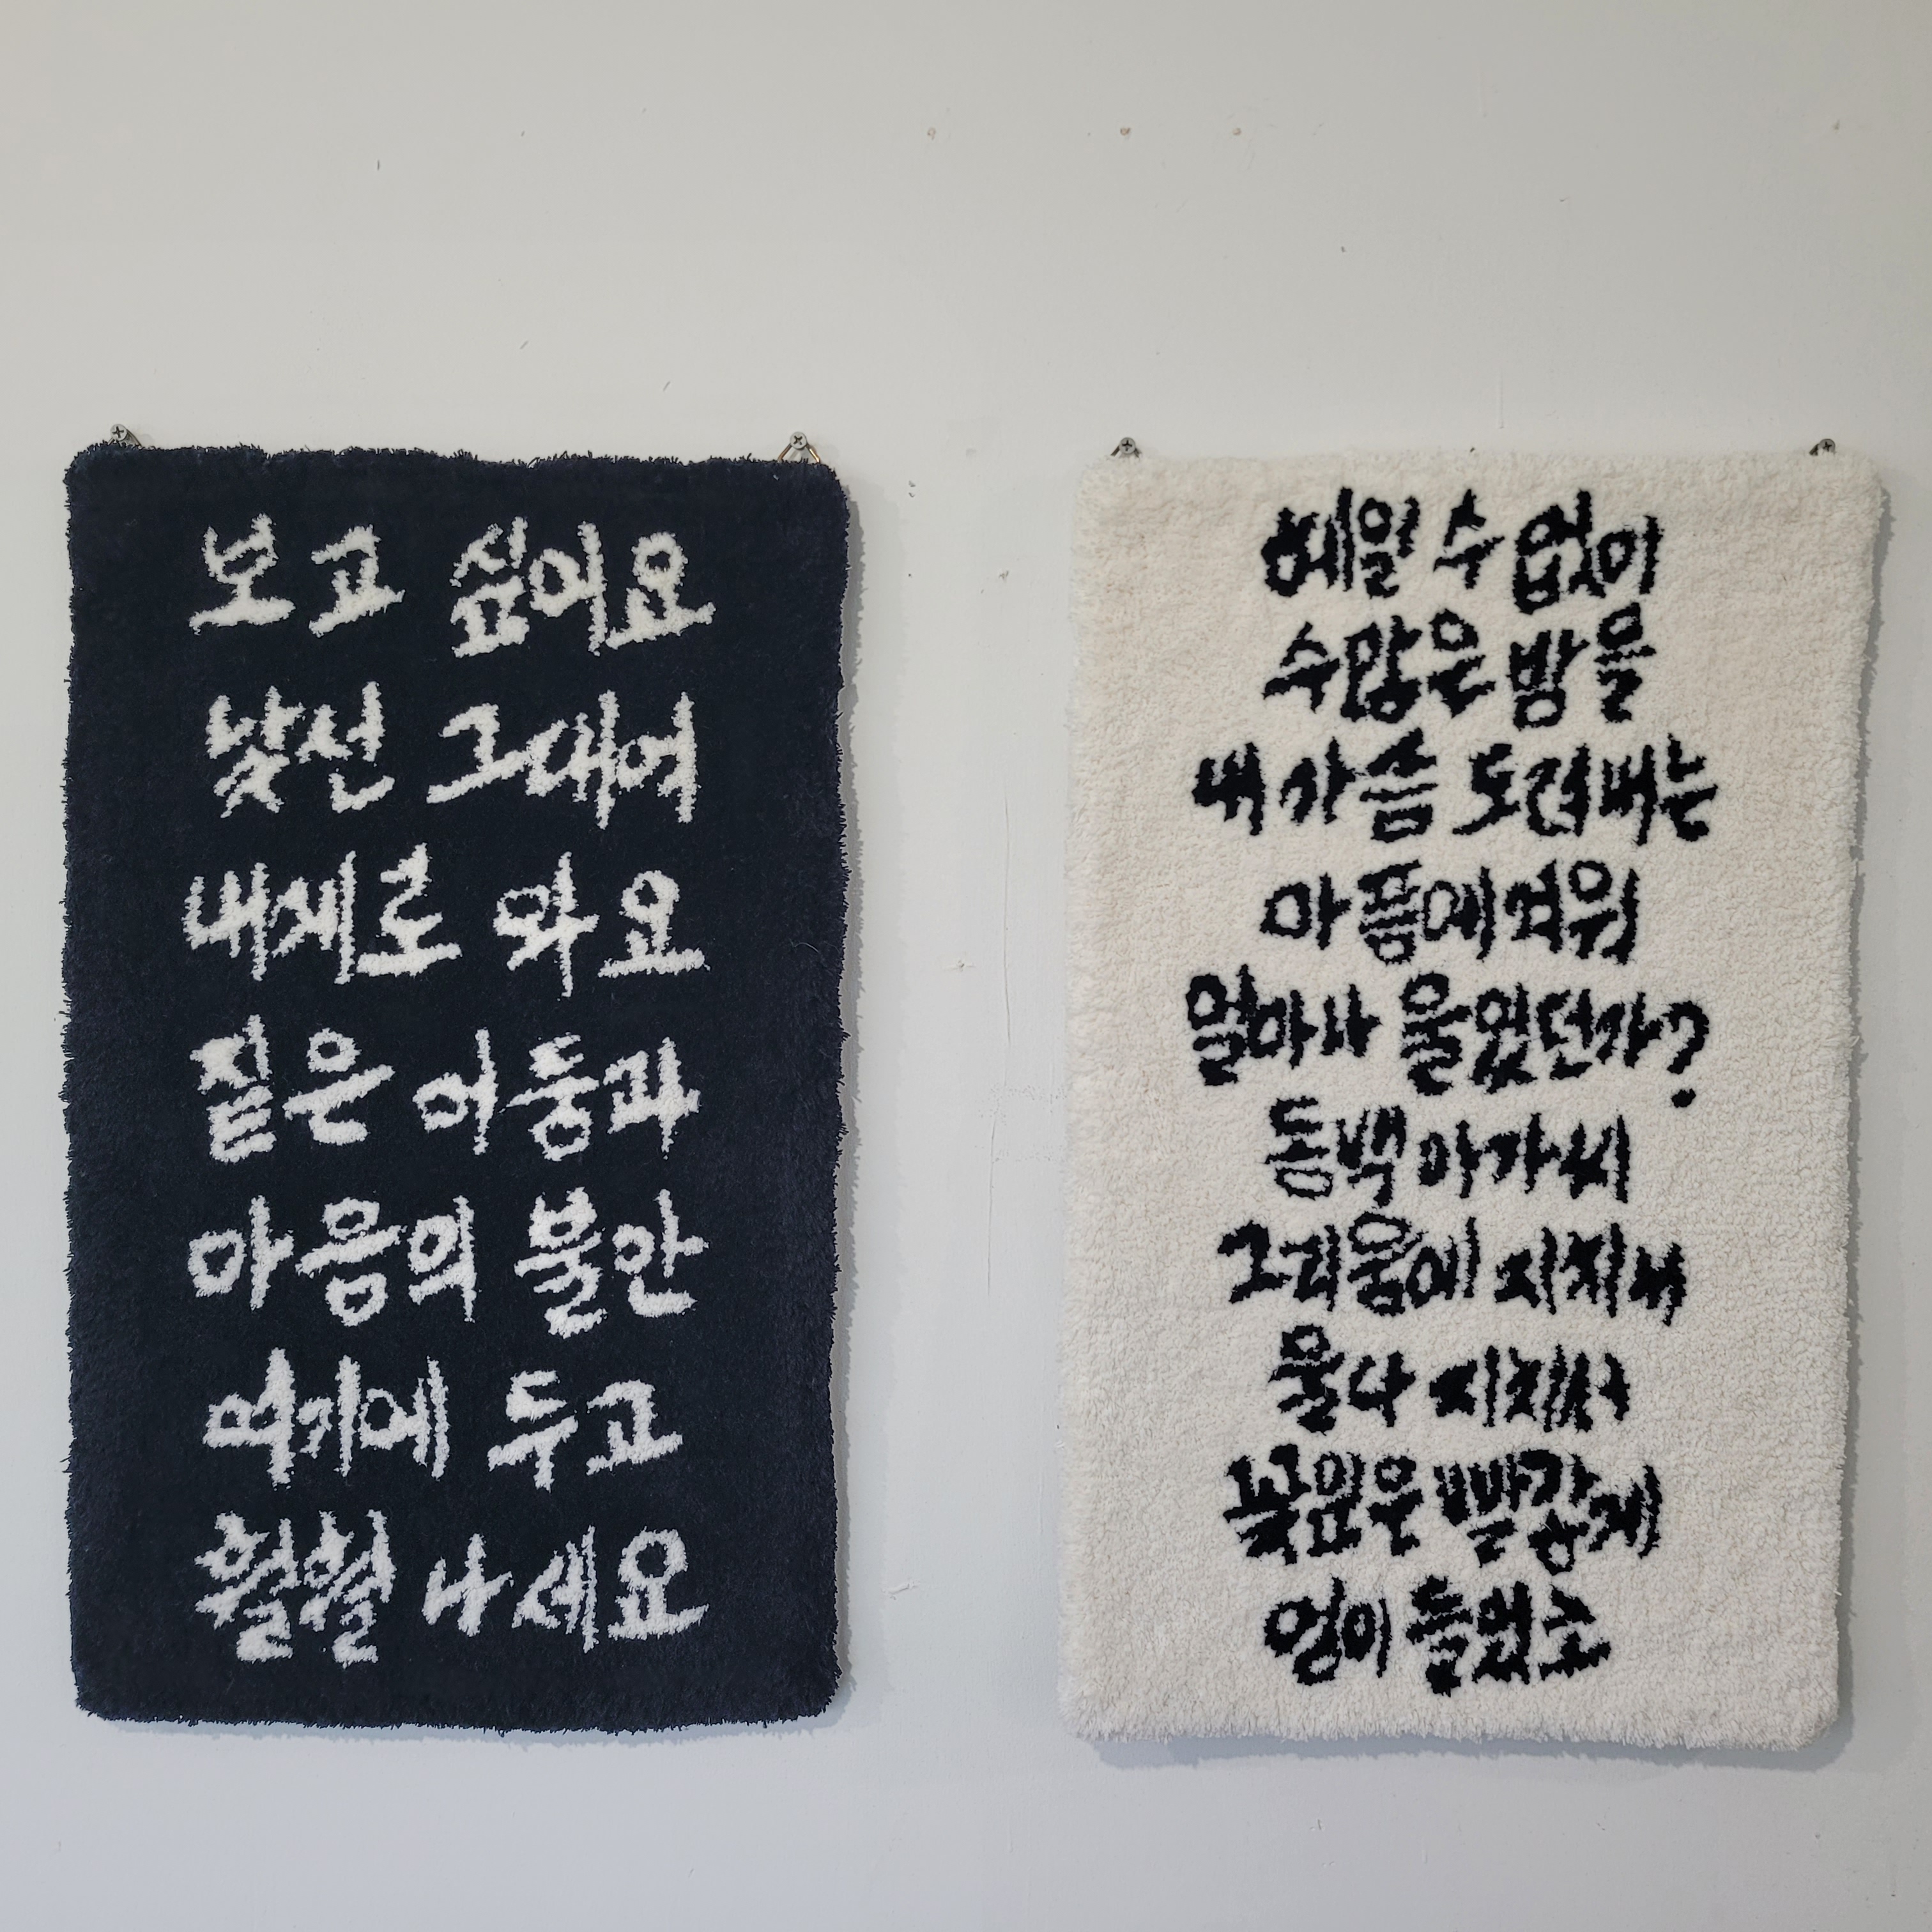 보고 싶어요
낯선 그대여
내게로 와요
짙은 어둠과
마음의 불안
여기에 두고
훨훨 나세요
헤일 수 없이
수많은 밤을
내 가슴 도려내는
아픔에 겨워
얼마나 울었던가?
동백 아가씨
그리움에 지쳐서
울다 지쳐서
꽃잎은 빨갛게
멍이 들었소